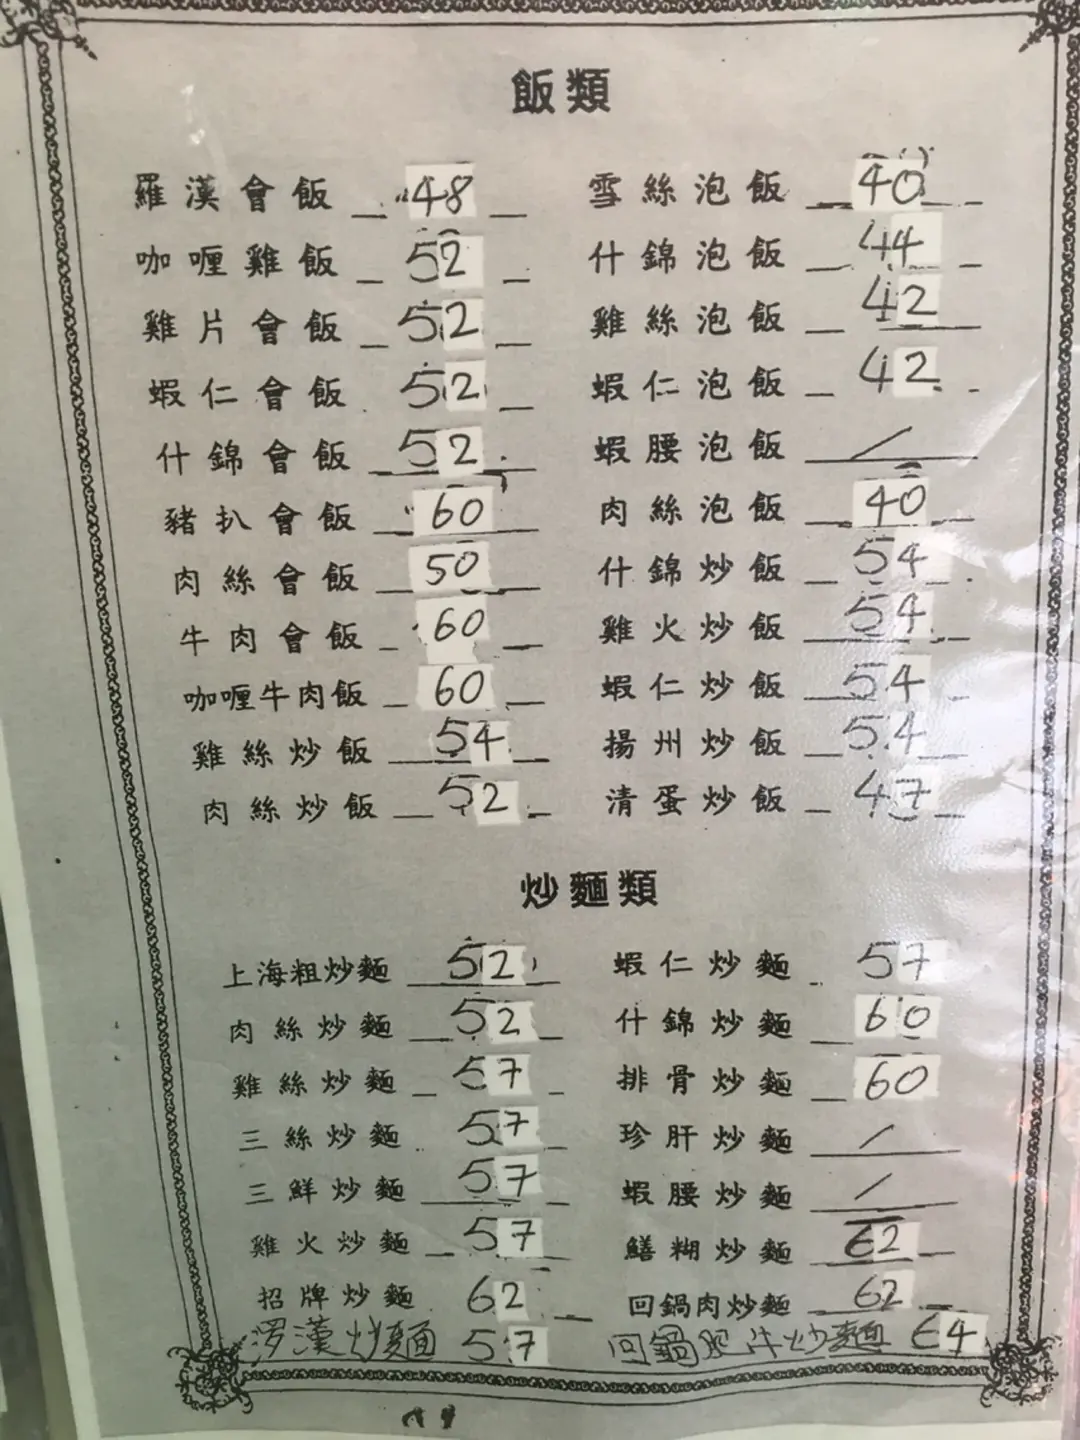 飯類
羅漢會飯 48 雪絲泡飯 40
咖喱雞飯 52 什錦泡飯 44
雞片會飯 52 雞絲泡飯 42
蝦仁會飯 52 蝦仁泡飯 42
什錦會飯 52 蝦腰泡飯 /
豬扒會飯 60 肉絲泡飯 40
肉絲會飯 50 什錦炒飯 54
牛肉會飯 60 雞火炒飯 54
咖喱牛肉飯 60 蝦仁炒飯 54
雞絲炒飯 54 揚州炒飯 54
肉絲炒飯 52 清蛋炒飯 47
炒麵類
上海粗炒麵 52 蝦仁炒麵 57
肉絲炒麵 52 什錦炒麵 60
雞絲炒麵 57 排骨炒麵 60
三絲炒麵 57 珍肝炒麵 /
三鮮炒麵 57 蝦腰炒麵 /
雞火炒麵 57 鱔糊炒麵 62
招牌炒麵 62 回鍋肉炒麵 62
罗漢炒麵 57 回鍋肥牛炒麵 64